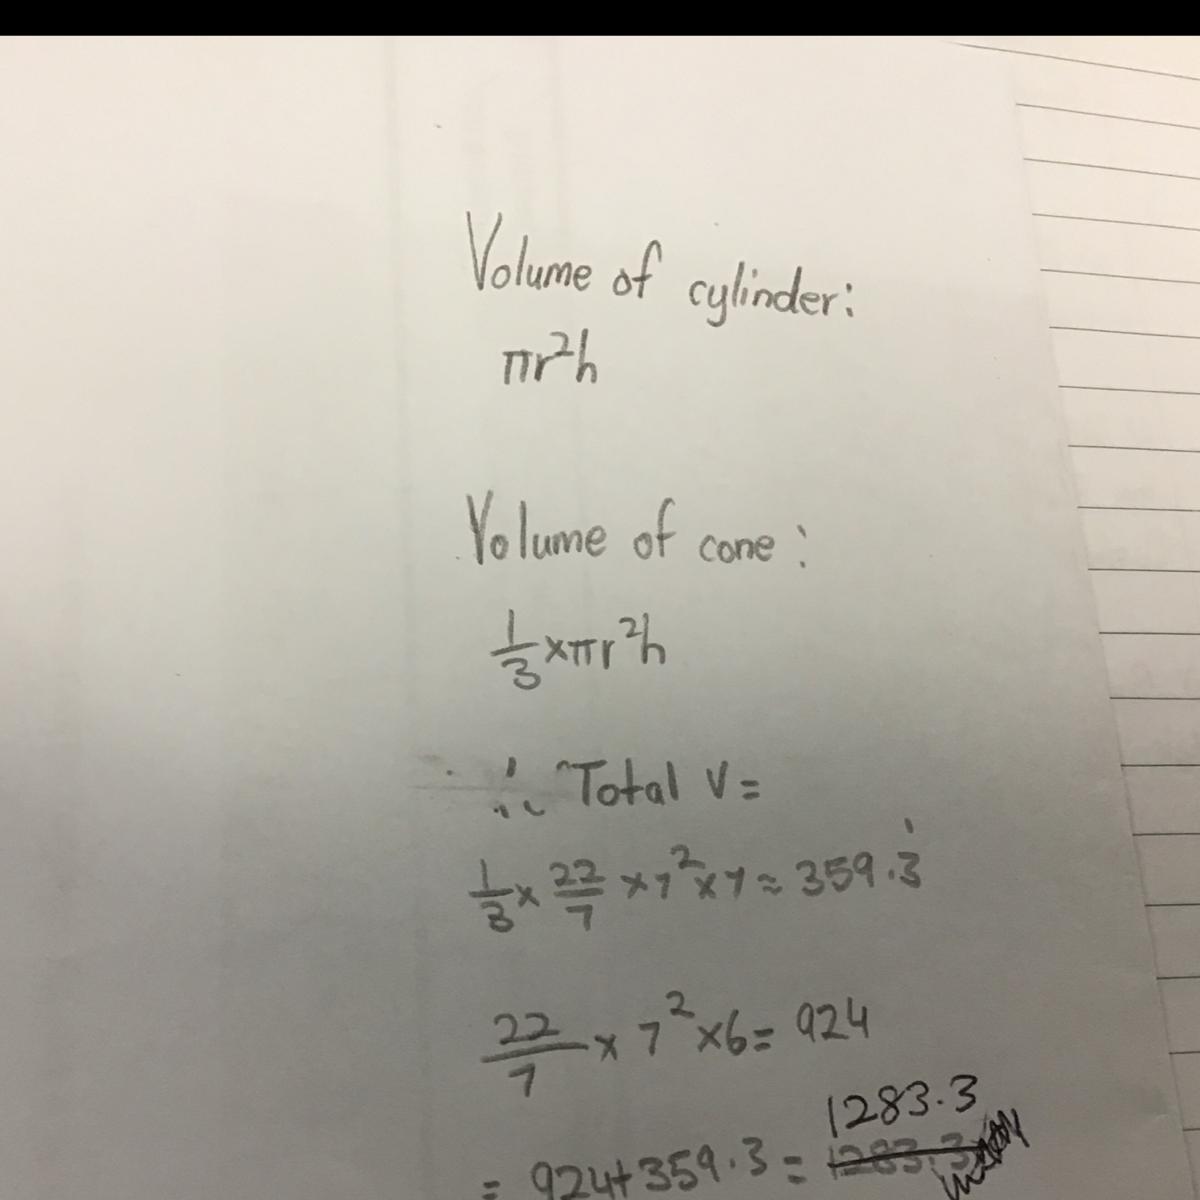 Volume of cylinder:
πr²h
Volume of cone:
1/3 ×πr²h
∴ Total V=
1/3 × 22/7 ×7²×7≈359.3̇
22/7 × 7²×6=924
1283.3
=924+359.3=1283.3